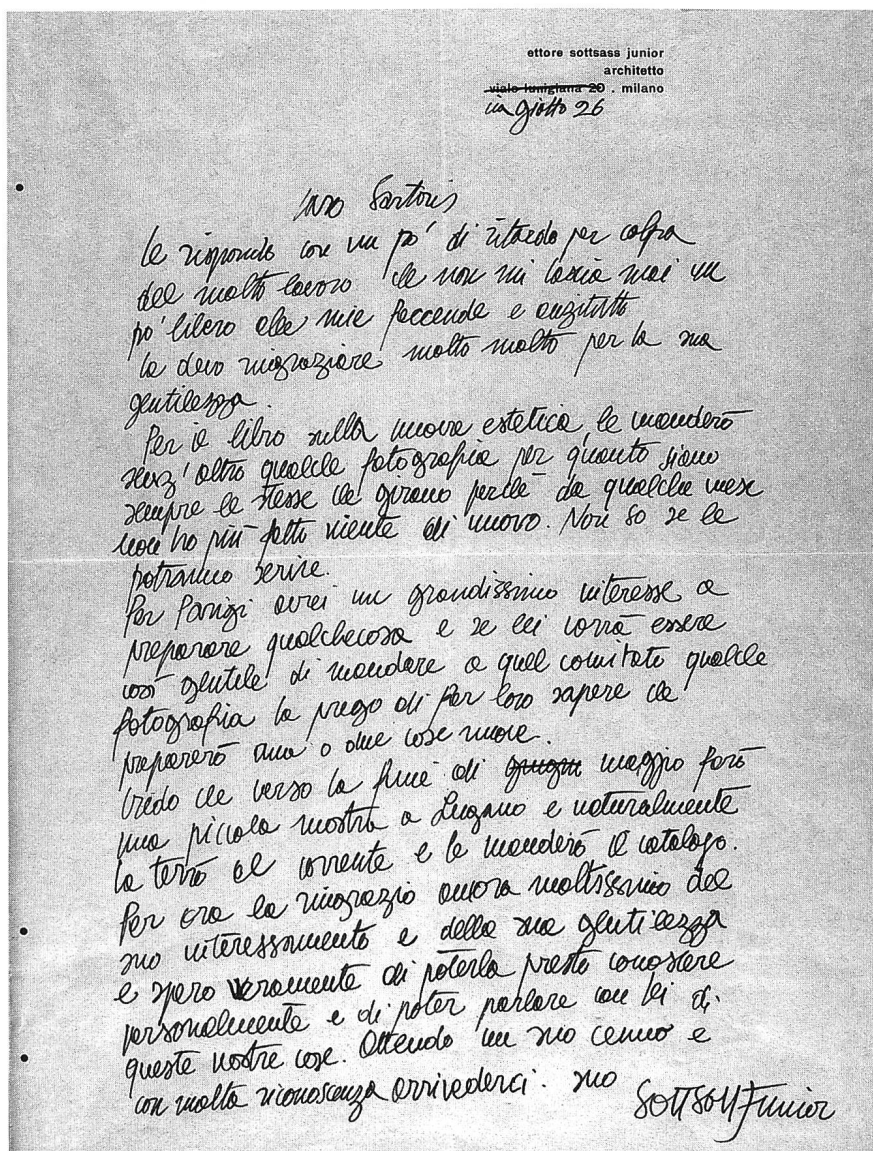 ettore sottsass junior
architetto
viale lunigiana 20 . milano
via giotto 26
Caro Sartoris
le rispondo con un po' di ritardo per colpa
del molto lavoro che non mi lascia mai un
po' libero alle mie faccende e anzitutto
la devo ringraziare molto molto per la sua
gentilezza.
Per il libro sulla nuova estetica, le manderò
senz'altro qualche fotografia per quanto siano
sempre le stesse che girano perchè da qualche mese
non ho più fatto niente di nuovo. Non so se le
potranno servire.
Per Parigi avrei un grandissimo interesse a
preparare qualchecosa e se lei vorrà essere
così gentile di mandare a quel comitato qualche
fotografia la prego di far loro sapere che
preparerò una o due cose nuove.
Credo che verso la fine di giugno maggio farò
una piccola mostra a Lugano e naturalmente
la terrò al corrente e le manderò il catalogo.
Per ora la ringrazio ancora moltissimo del
suo interessamento e della sua gentilezza
e spero veramente di poterla presto conoscere
personalmente e di poter parlare con lei di
queste nostre cose. Attendo un suo cenno e
con molta riconoscenza arrivederci. suo
Sottsass Junior